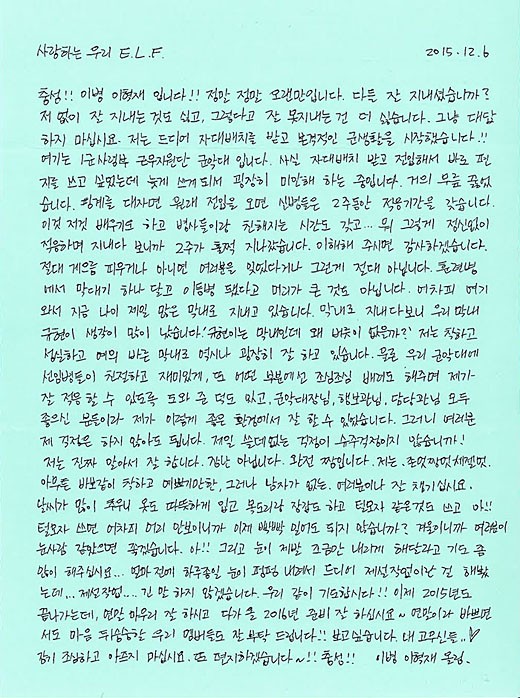 사랑하는 우리 E.L.F. 2015.12.6
충성!! 이병 이혁재 입니다!! 정말 정말 오랜만입니다. 다들 잘 지내셨습니까?
저 없이 잘 지내는 것도 싫고, 그렇다고 잘 못지내는 건 더 싫습니다. 그냥 대답
하지 마십시요. 저는 드디어 자대배치를 받고 본격적인 군생활을 시작했습니다.!!
여기는 1군사령부 근무지원단 군악대 입니다. 사실 자대배치 받고 전입해서 바로 편
지를 쓰고 싶었는데 늦게 쓰게되서 굉장히 미안해 하는 중입니다. 거의 무릎 꿇었
습니다. 핑계를 대자면 원래 전입을 오면 신병들은 2주동안 적응기간을 갖습니다.
이것 저것 배우기도 하고 병사들이랑 친해지는 시간도 갖고... 뭐 그렇게 정신없이
적응하며 지내다 보니까 2주가 훌쩍 지나갔습니다. 이해해 주시면 감사하겠습니다.
절대 게으름 피우거나 아니면 여러분을 잊었다거나 그런게 절대 아닙니다. 훈련병
에서 막대기 하나 달고 이등병 됐다고 머리가 큰 것도 아닙니다. 어차피 여기
와서 지금 나이 제일 많은 막내로 지내고 있습니다. 막내로 지내다보니 우리 막내
규현이 생각이 많이 났습니다. '규현이는 막내인데 왜 버릇이 없을까?' 저는 착하고
성실하고 예의 바른 막내로 역시나 굉장히 잘 하고 있습니다. 물론 우리 군악대에
선임병들이 친절하고 재미있게, 또 어떤 부분에선 조심조심 배려도 해주며 제가
잘 적응 할 수 있도록 도와 준 덕도 있고, 군악대장님, 행보관님, 담당관님 모두
좋으신 분들이라 제가 이렇게 좋은 환경에서 잘 할 수 있었습니다. 그러니 여러분
제 걱정은 하지 않아도 됩니다. 제일 쓸데없는 걱정이 슈주걱정이지 않습니까!
저는 진짜 알아서 잘 합니다. 장난 아닙니다. 완전 짱입니다. 저는.
아무튼 바보같이 착하고 예쁘기만한, 그러나 남자가 없는. 여러분이나 잘 챙기십시요.
날씨가 많이 추우니 옷도 따뜻하게 입고 목도리랑 장갑도 하고 털모자 같은것도 쓰고 아!!
털모자 쓰면 어차피 머리 안보이니까 이제 빡빡 밀어도 되지 않습니까? 겨울이니까 여러분이
눈사람 같았으면 좋겠습니다. 아!! 그리고 눈이 제발 조금만 내리게 해달라고 기도 좀
많이 해주십시요... 얼마 전에 하루종일 눈이 펑펑 내려서 드디어 제설작업이란 걸 해봤
는데... 제설작업... 긴 말 하지 않겠습니다. 우리 같이 기도합시다!! 이제 2015년도
끝나가는데, 연말 마무리 잘 하시고 다가 올 2016년 준비 잘 하십시요~ 연말이라 바쁘면
서도 마음 뒤숭숭할 우리 멤버들도 잘 부탁 드립니다!! 보고싶습니다. 내 고무신들..♡
감기 조심하고 아프지 마십시요. 또 편지하겠습니다~!! 충성!! 이병 이혁재 올림.